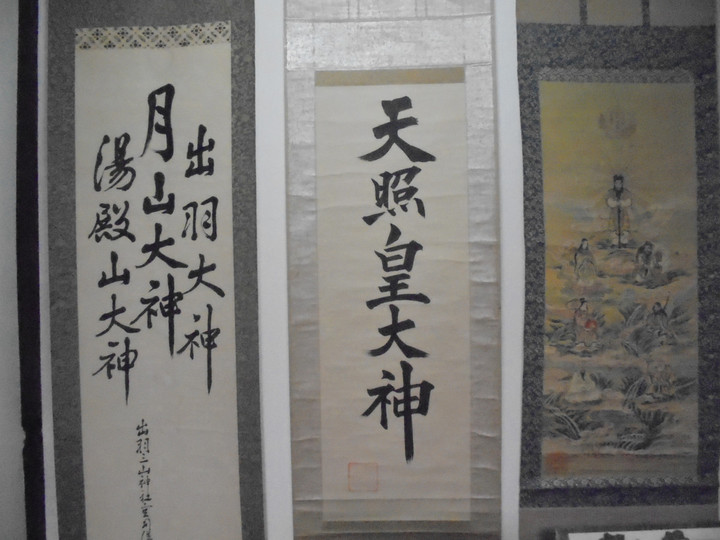 天照皇大神
出羽大神
月山大神
湯殿山大神
出羽三山神社宮司